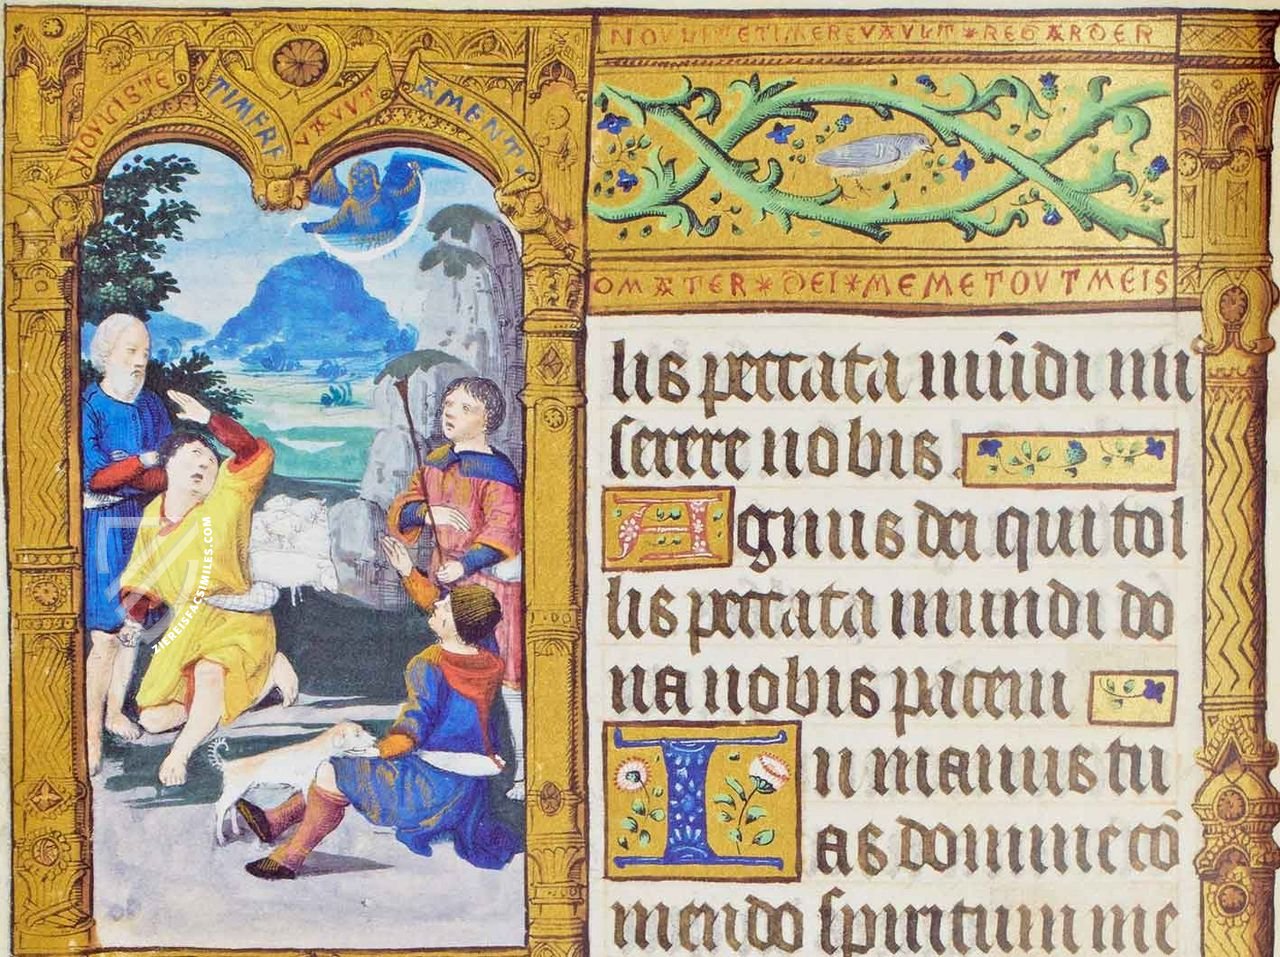 NOVLITETIMEREVAVLT*REGARDER
NOVLISTE TIMERE VAVLT AMENT
OMATER*DEI*MEMETOVTMEIS
lis peccata mūdi mi
serere nobis.
Agnus dei qui tol
lis peccata mundi do
na nobis pacem
In manus tu
as domine cō
mendo spiritum me
ZIEREISFACSIMILES.COM